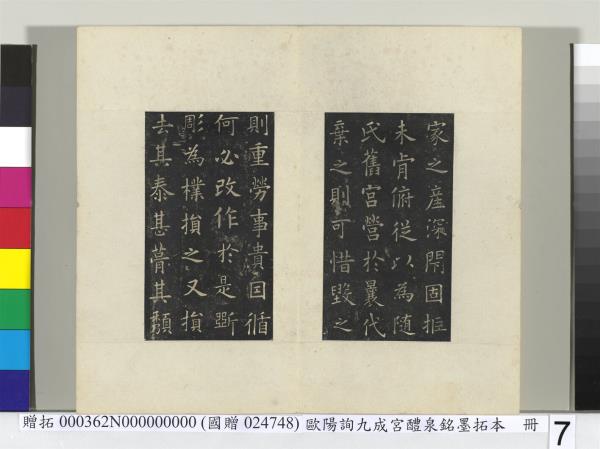 家之産深閇固拒
未肯俯從以為随
氏舊宫營於曩代
棄之則可惜毀之
則重勞事貴因循
何必改作於是斲
彫為樸損之又損
去其泰甚葺其頹
贈拓 000362N000000000 (國贈 024748) 歐陽詢九成宮醴泉銘墨拓本 冊
7